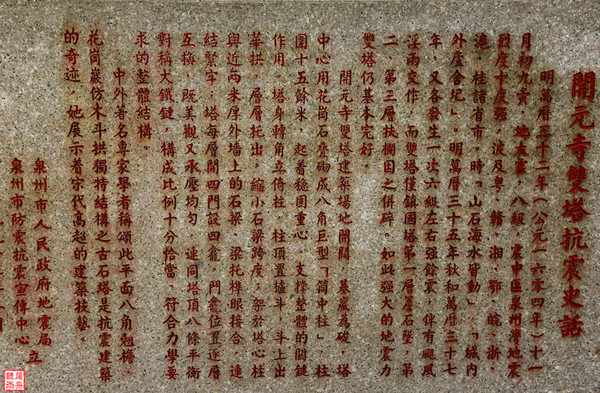 開元寺雙塔抗震史話
明萬曆三十二年（公元一六〇四年）十一
月初九夜，地大震，八級，震中區泉州灣地震
烈度十度强，波及粤、贛、湘、鄂、皖、浙、
滬、桂諸省市，時「山石海水皆動」、「城内
外廬舍圮」。明萬曆三十五年秋和萬曆三十七
年，又各發生一次六級左右强餘震，伴有颶風
淫雨交作，而雙塔僅鎮國塔第一層蓋石墜，第
二、第三層扶欄因之併碎，如此强大的地震力
雙塔仍基本完好。
開元寺雙塔建築場地開闊，基巖為礎，塔
中心用花崗石壘砌成八角巨型「筒中柱」，柱
圍十五餘米，起着穩固重心，支撑整體的關鍵
作用。塔身轉角立倚柱，柱頂置櫨斗，斗上出
華拱，層層托出，縮小石梁跨度；架於塔心柱
與近兩米厚外墻上的石梁，梁托榫眼接合，連
結緊牢；塔每層開四門設四龕，門龕位置逐層
互易，既美觀又承壓均匀，連同塔頂八條平衡
對稱大鐵鏈，構成比例十分恰當，符合力學要
求的整體結構。
中外著名專家學者稱頌此平面八角翹檐
花崗巖仿木斗拱獨特結構之古石塔是抗震建築
的奇迹，她展示着宋代高超的建築技藝。
泉州市人民政府地震局
泉州市防震抗震宣傳中心
立